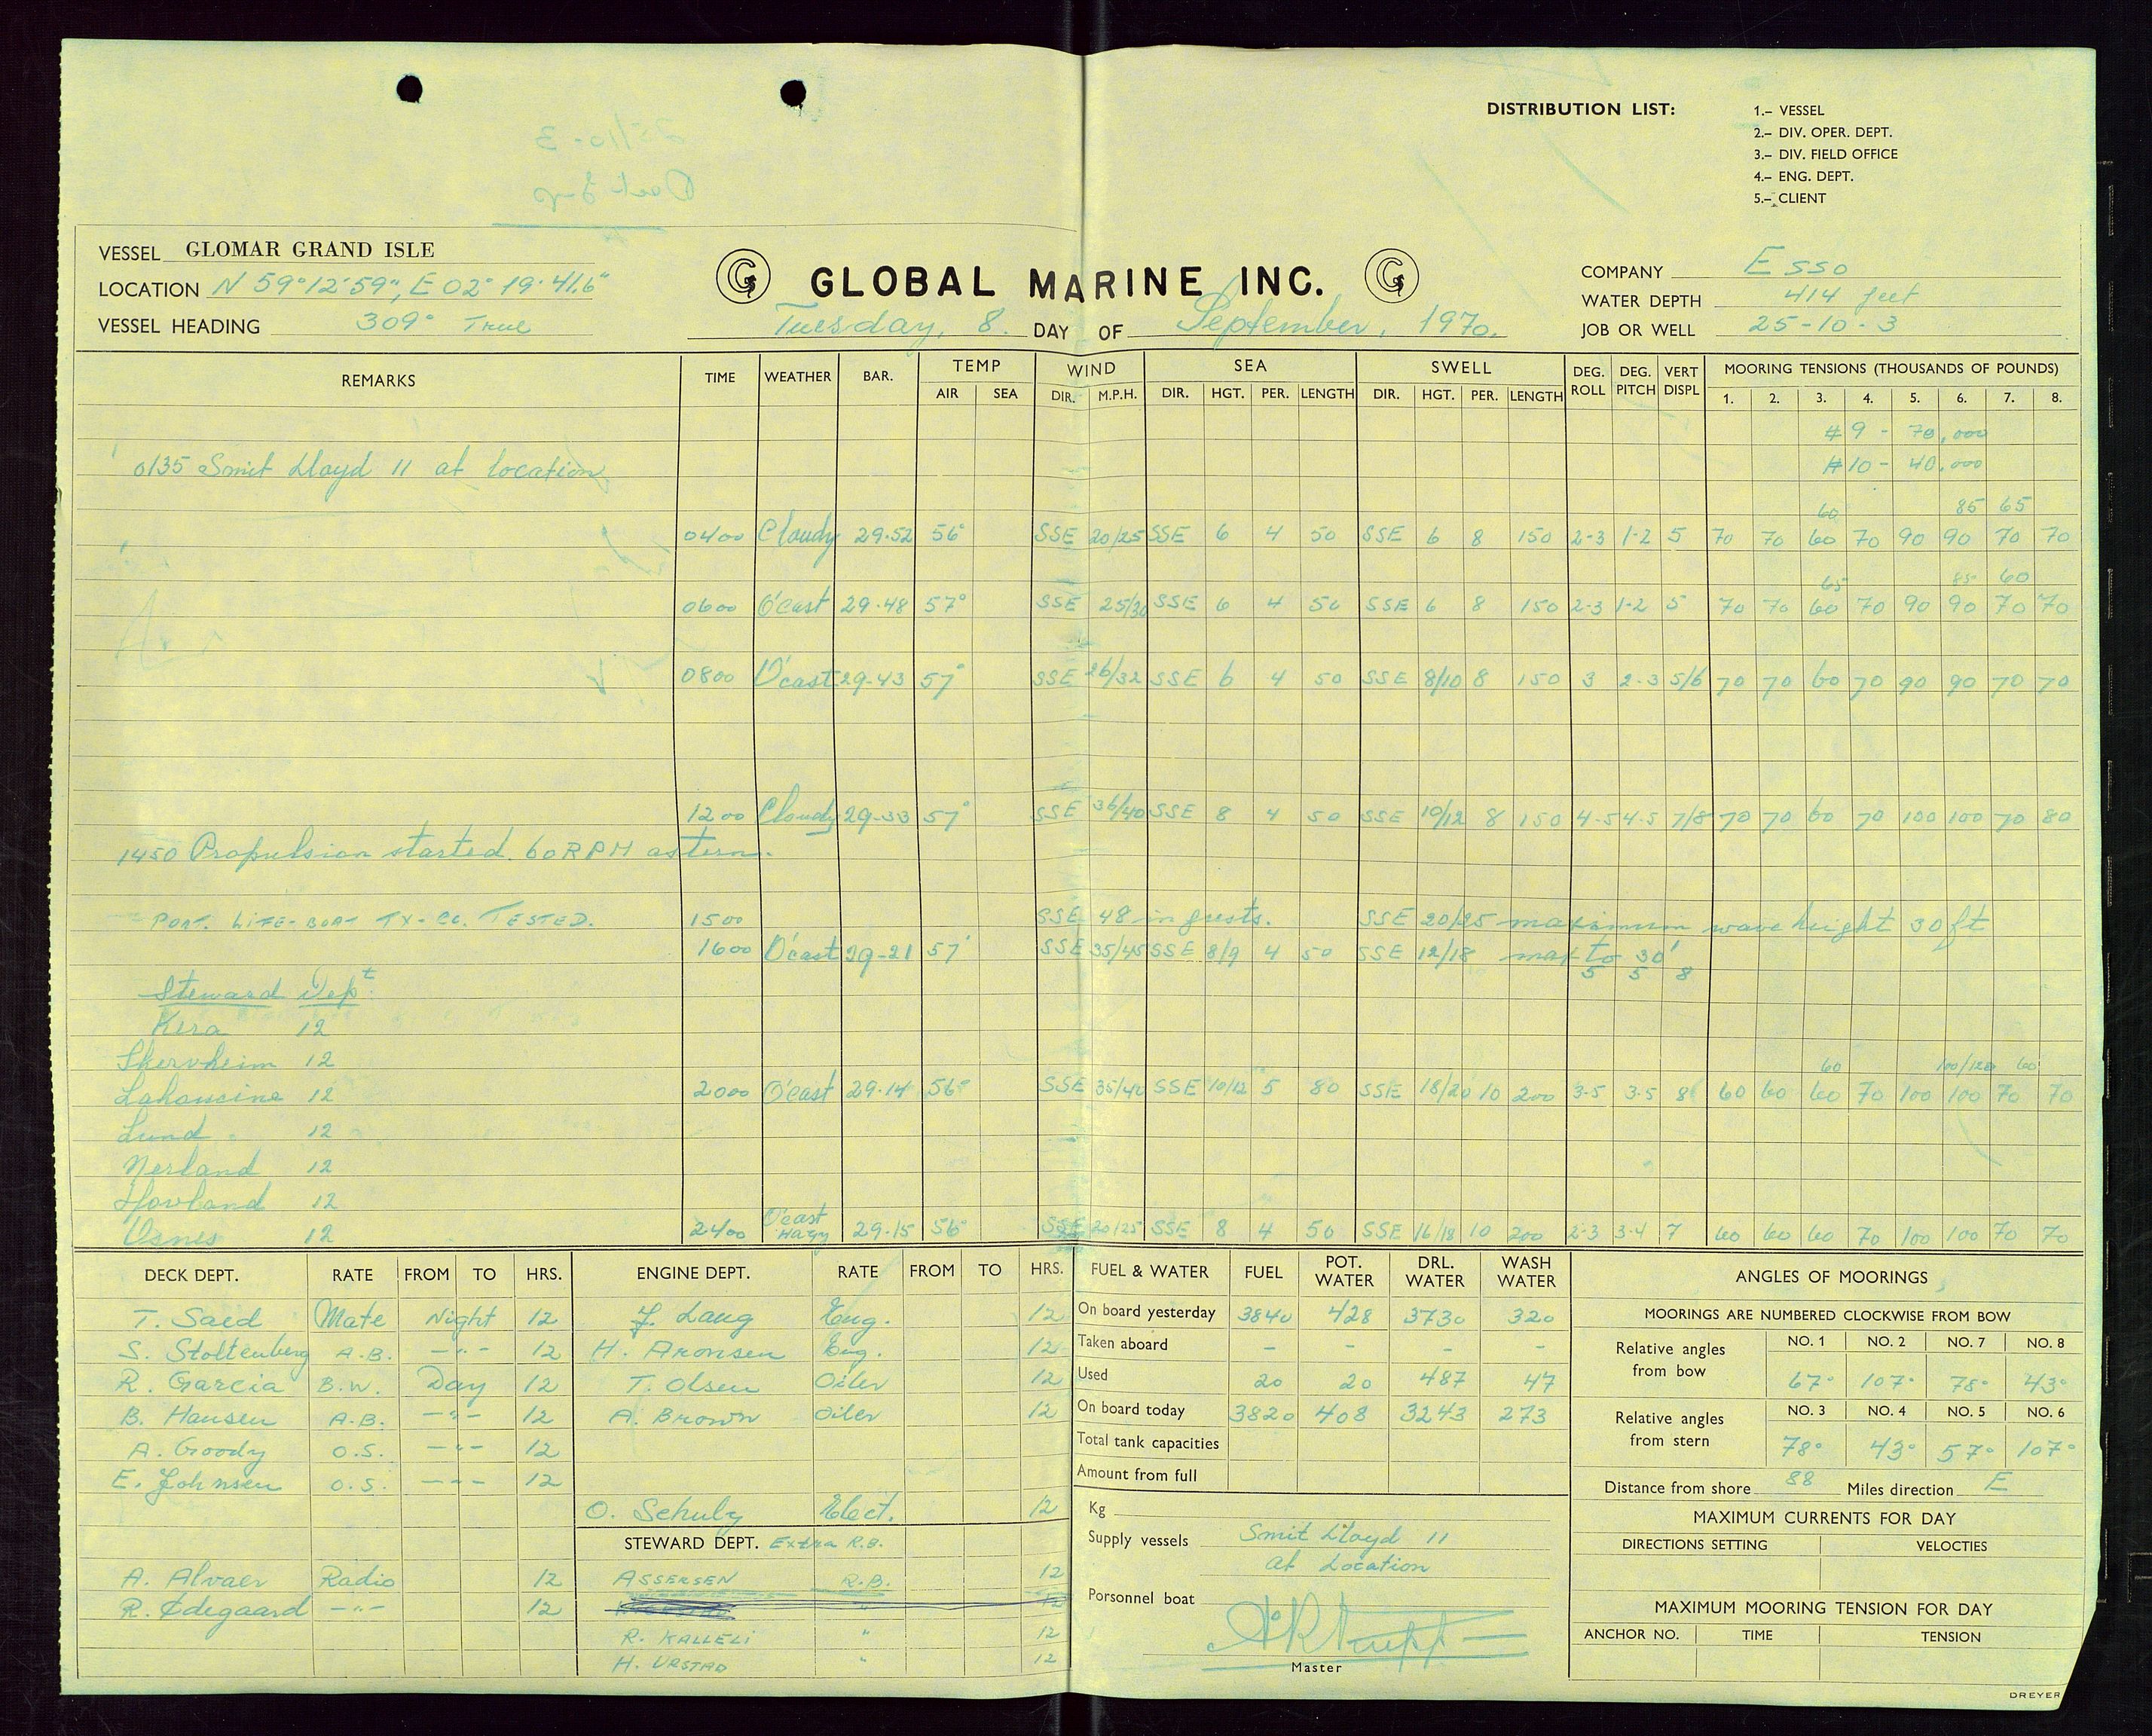 DISTRIBUTION LIST:
1.– VESSEL
2.– DIV. OPER. DEPT.
3.– DIV. FIELD OFFICE
4.– ENG. DEPT.
5.– CLIENT
VESSEL GLOMAR GRAND ISLE
LOCATION N 59°12'59", E 02° 19'41.6"
VESSEL HEADING 309° True
GLOBAL MARINE INC.
Tuesday, 8. DAY OF September, 1970.
COMPANY Esso
WATER DEPTH 414 feet
JOB OR WELL 25-10-3
REMARKS TIME WEATHER BAR. TEMP WIND SEA SWELL DEG. ROLL DEG. PITCH VERT DISPL MOORING TENSIONS (THOUSANDS OF POUNDS)
AIR SEA DIR. M.P.H. DIR. HGT. PER. LENGTH DIR. HGT. PER. LENGTH 1. 2. 3. 4. 5. 6. 7. 8.
#9 - 70,000
0135 Smit Lloyd 11 at location #10 - 40,000
60 85 65
0400 Cloudy 29.52 56° SSE 20/25 SSE 6 4 50 SSE 6 8 150 2-3 1-2 5 70 70 60 70 90 90 70 70
65 85 60
0600 O'cast 29.48 57° SSE 25/30 SSE 6 4 50 SSE 6 8 150 2-3 1-2 5 70 70 60 70 90 90 70 70
0800 O'cast 29-43 57° SSE 26/32 SSE 6 4 50 SSE 8/10 8 150 3 2-3 5/6 70 70 60 70 90 90 70 70
1200 Cloudy 29-33 57° SSE 36/40 SSE 8 4 50 SSE 10/12 8 150 4-5 4-5 7/8 70 70 60 70 100 100 70 80
1450 Propulsion started. 60 RPM astern.
PORT. LIFE-BOAT TX-CG. TESTED. 1500 SSE 48 in gusts. SSE 20/25 maximum wave height 30 ft
1600 O'cast 29-21 57° SSE 35/45 SSE 8/9 4 50 SSE 12/18 max to 30'
5 5 8
Steward Dept.
Kera 12
Skervheim 12
60 100/120 60
Lahoucine 12 2000 O'cast 29.14 56° SSE 35/40 SSE 10/12 5 80 SSE 18/20 10 200 3-5 3-5 8 60 60 60 70 100 100 70 70
Lund 12
Nerland 12
Hovland 12
Osnes 12 2400 O'cast Hazy 29.15 56° SSE 20/25 SSE 8 4 50 SSE 16/18 10 200 2-3 3-4 7 60 60 60 70 100 100 70 70
DECK DEPT. RATE FROM TO HRS.
T. Saed Mate Night 12
S. Stoltenberg A.B. –"– 12
R. Garcia B.W. Day 12
B. Hansen A.B. –"– 12
A. Goody O.S. –"– 12
E. Johnsen O.S. –"– 12
A. Alvaer Radio 12
R. Ødegaard –"– 12
ENGINE DEPT. RATE FROM TO HRS.
J. Laug Eng. 12
H. Aronsen Eng. 12
T. Olsen Oiler 12
A. Brown Oiler 12
O. Schulz Elect. 12
STEWARD DEPT. Extra R.B.
ASSERSEN R.B. 12
R. KALLELI " 12
H. URSTAD " 12
FUEL & WATER FUEL POT. WATER DRL. WATER WASH WATER
On board yesterday 3840 428 3730 320
Taken aboard – – – –
Used 20 20 487 47
On board today 3820 408 3243 273
Total tank capacities
Amount from full
Kg
Supply vessels Smit Lloyd 11
at Location
Porsonnel boat
Master
ANGLES OF MOORINGS
MOORINGS ARE NUMBERED CLOCKWISE FROM BOW
Relative angles from bow NO. 1 NO. 2 NO. 7 NO. 8
67° 107° 78° 43°
Relative angles from stern NO. 3 NO. 4 NO. 5 NO. 6
78° 43° 57° 107°
Distance from shore 88 Miles direction E
MAXIMUM CURRENTS FOR DAY
DIRECTIONS SETTING VELOCTIES
MAXIMUM MOORING TENSION FOR DAY
ANCHOR NO. TIME TENSION
DREYER